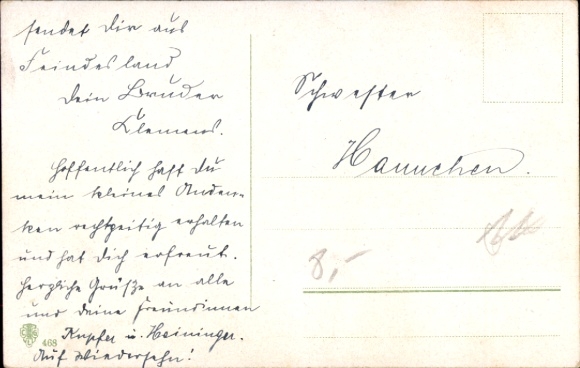 sendet Dir aus
Feindesland
Dein Bruder
Klemens.
Hoffentlich hast Du
mein kleines Anden-
ken rechtzeitig erhalten
und hat Dich erfreut.
Herzliche Grüße an alle
und deine Freundinnen
Kupfer u. Heininger.
Auf Wiedersehn!
468
Schwester
Hannchen.
8,-